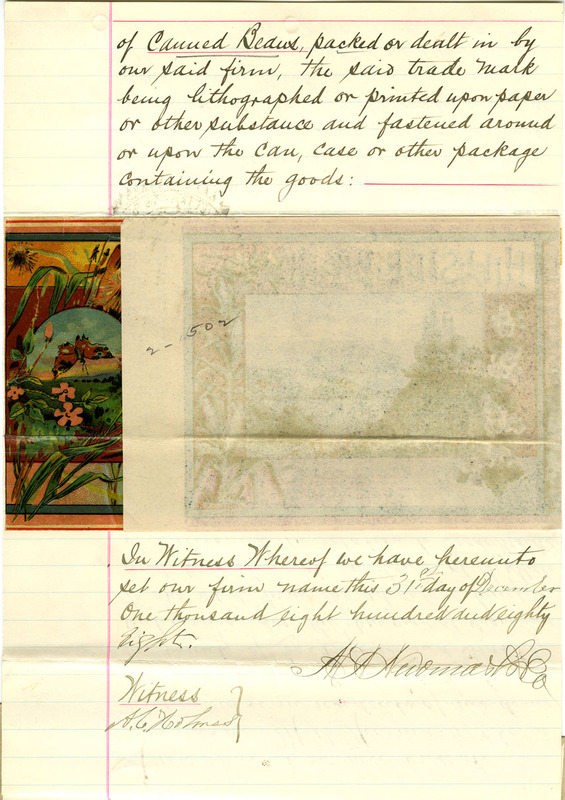 of Canned Beans, packed or dealt in by
our said firm, the said trade mark
being lithographed or printed upon paper
or other substance and fastened around
or upon the can, case or other package
containing the goods:
2 - 502
In Witness Whereof we have hereunto
set our firm name this 31st day of December
One thousand eight hundred and eighty
Eight.
& Co
Witness
A. C. Holmes